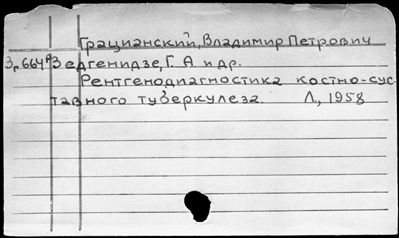 Грацианский, Владимир Петрович
Зедгенидзе, Г. А и др.
Рентгенодиагностика костно-сус-
тавного туберкулеза. Л, 1958